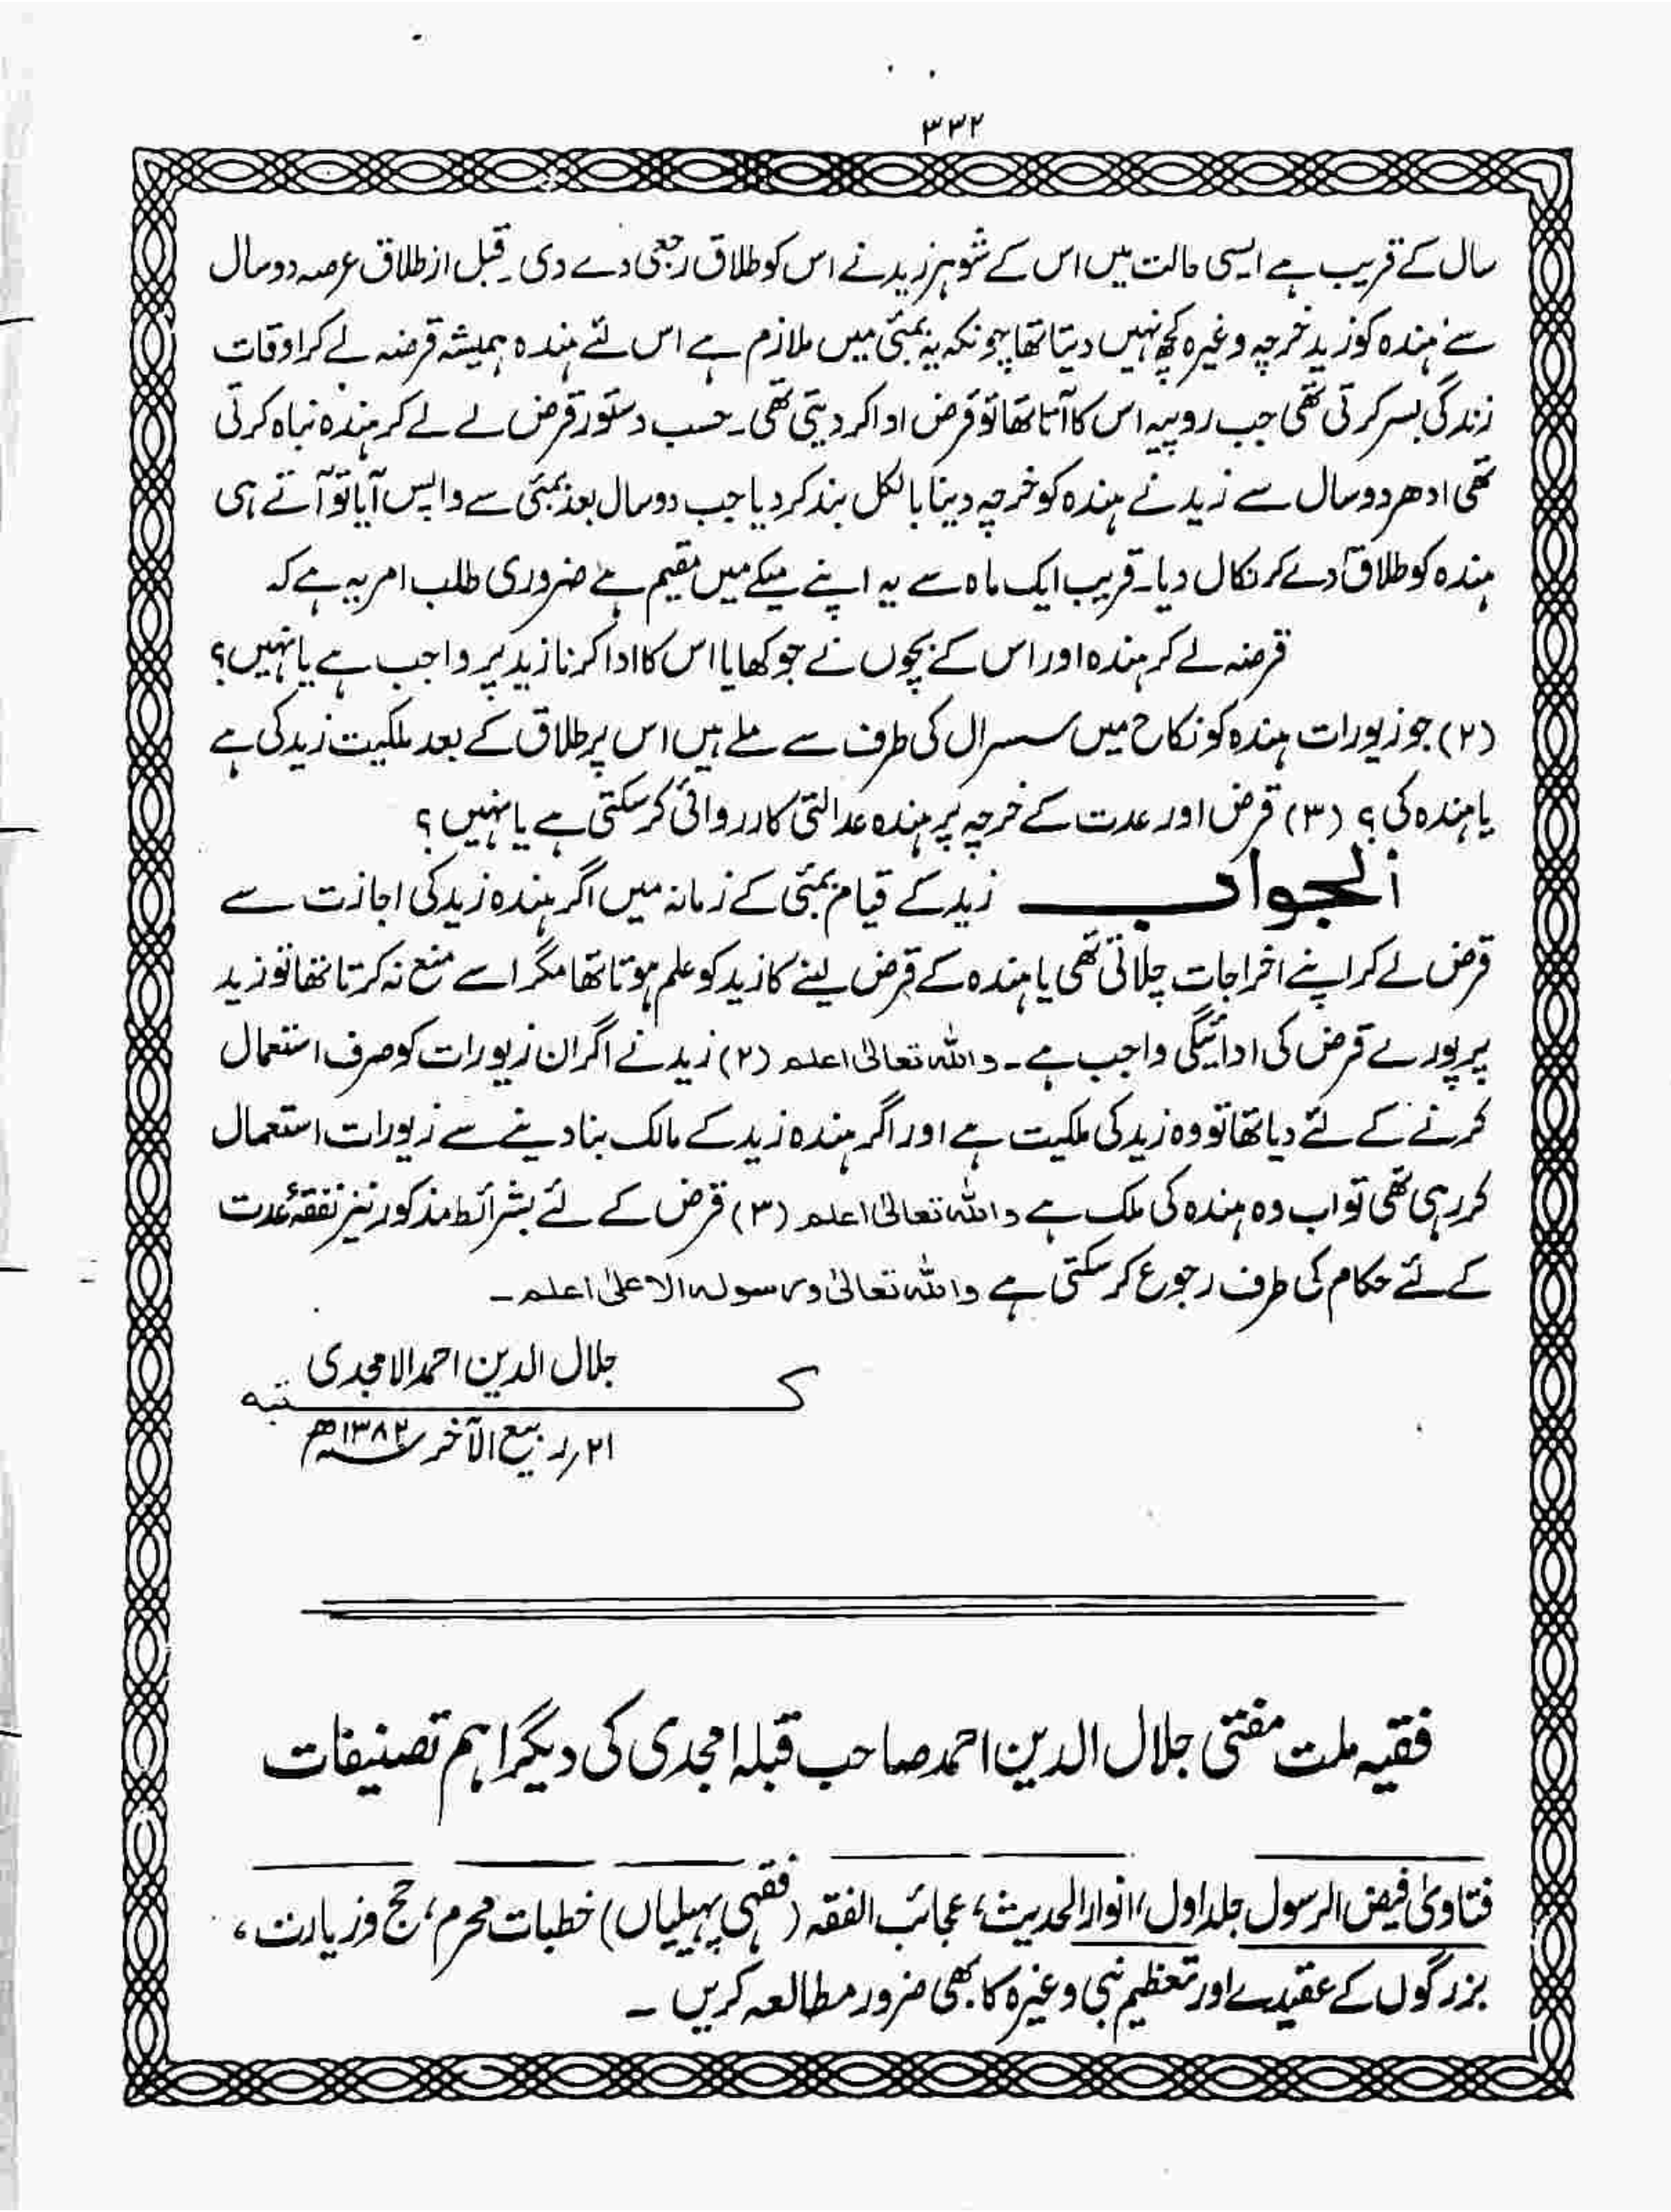 ۳۳۲
سال کے قریب ہے ایسی حالت میں اس کے شوہر زید نے اس کو طلاق رجعی دے دی۔ قبل از طلاق عرصہ دو سال
سے ہندہ کو زید خرچہ وغیرہ کچھ نہیں دیتا تھا چونکہ یہ بمبئی میں ملازم ہے اس لئے ہندہ ہمیشہ قرضہ لے کر اوقات
زندگی بسر کرتی تھی جب روپیہ اس کا آتا تھا تو قرض ادا کر دیتی تھی۔ حسب دستور قرض لے لے کر ہندہ نباہ کرتی
تھی ادھر دو سال سے زید نے ہندہ کو خرچہ دینا بالکل بند کر دیا جب دو سال بعد بمبئی سے واپس آیا تو آتے ہی
ہندہ کو طلاق دے کر نکال دیا۔ قریب ایک ماہ سے یہ اپنے میکے میں مقیم ہے ضروری طلب امر یہ ہے کہ
قرضہ لے کر ہندہ اور اس کے بچوں نے جو کھایا اس کا ادا کرنا زید پر واجب ہے یا نہیں؟
(۲) جو زیورات ہندہ کو نکاح میں سسرال کی طرف سے ملے ہیں اس پر طلاق کے بعد ملکیت زید کی ہے
یا ہندہ کی؟ (۳) قرض اور عدت کے خرچہ پر ہندہ عدالتی کارروائی کر سکتی ہے یا نہیں؟
الجواب زید کے قیام بمبئی کے زمانہ میں اگر ہندہ زید کی اجازت سے
قرض لے کر اپنے اخراجات چلاتی تھی یا ہندہ کے قرض لینے کا زید کو علم ہوتا تھا مگر اسے منع نہ کرتا تھا تو زید
پر پورے قرض کی ادائیگی واجب ہے۔ واللہ تعالیٰ اعلم (۲) زید نے اگر ان زیورات کو صرف استعمال
کرنے کے لئے دیا تھا تو وہ زید کی ملکیت ہے اور اگر ہندہ زید کے مالک بنا دینے سے زیورات استعمال
کر رہی تھی تو اب وہ ہندہ کی ملک ہے واللہ تعالیٰ اعلم (۳) قرض کے لئے بشرائط مذکور نیز نفقۂ عدت
کے لئے حکام کی طرف رجوع کر سکتی ہے واللہ تعالیٰ ورسولہ الاعلیٰ اعلم۔
جلال الدین احمد الامجدی
کتبہ
۲۱؍ ربیع الآخر ۱۳۸۲ھ
فقیہ ملت مفتی جلال الدین احمد صاحب قبلہ امجدی کی دیگر اہم تصنیفات
فتاویٰ فیض الرسول جلد اول، انوار الحدیث، عجائب الفقہ (فقہی پہیلیاں) خطبات محرم، حج و زیارت،
بزرگوں کے عقیدے اور تعظیم نبی وغیرہ کا بھی ضرور مطالعہ کریں۔